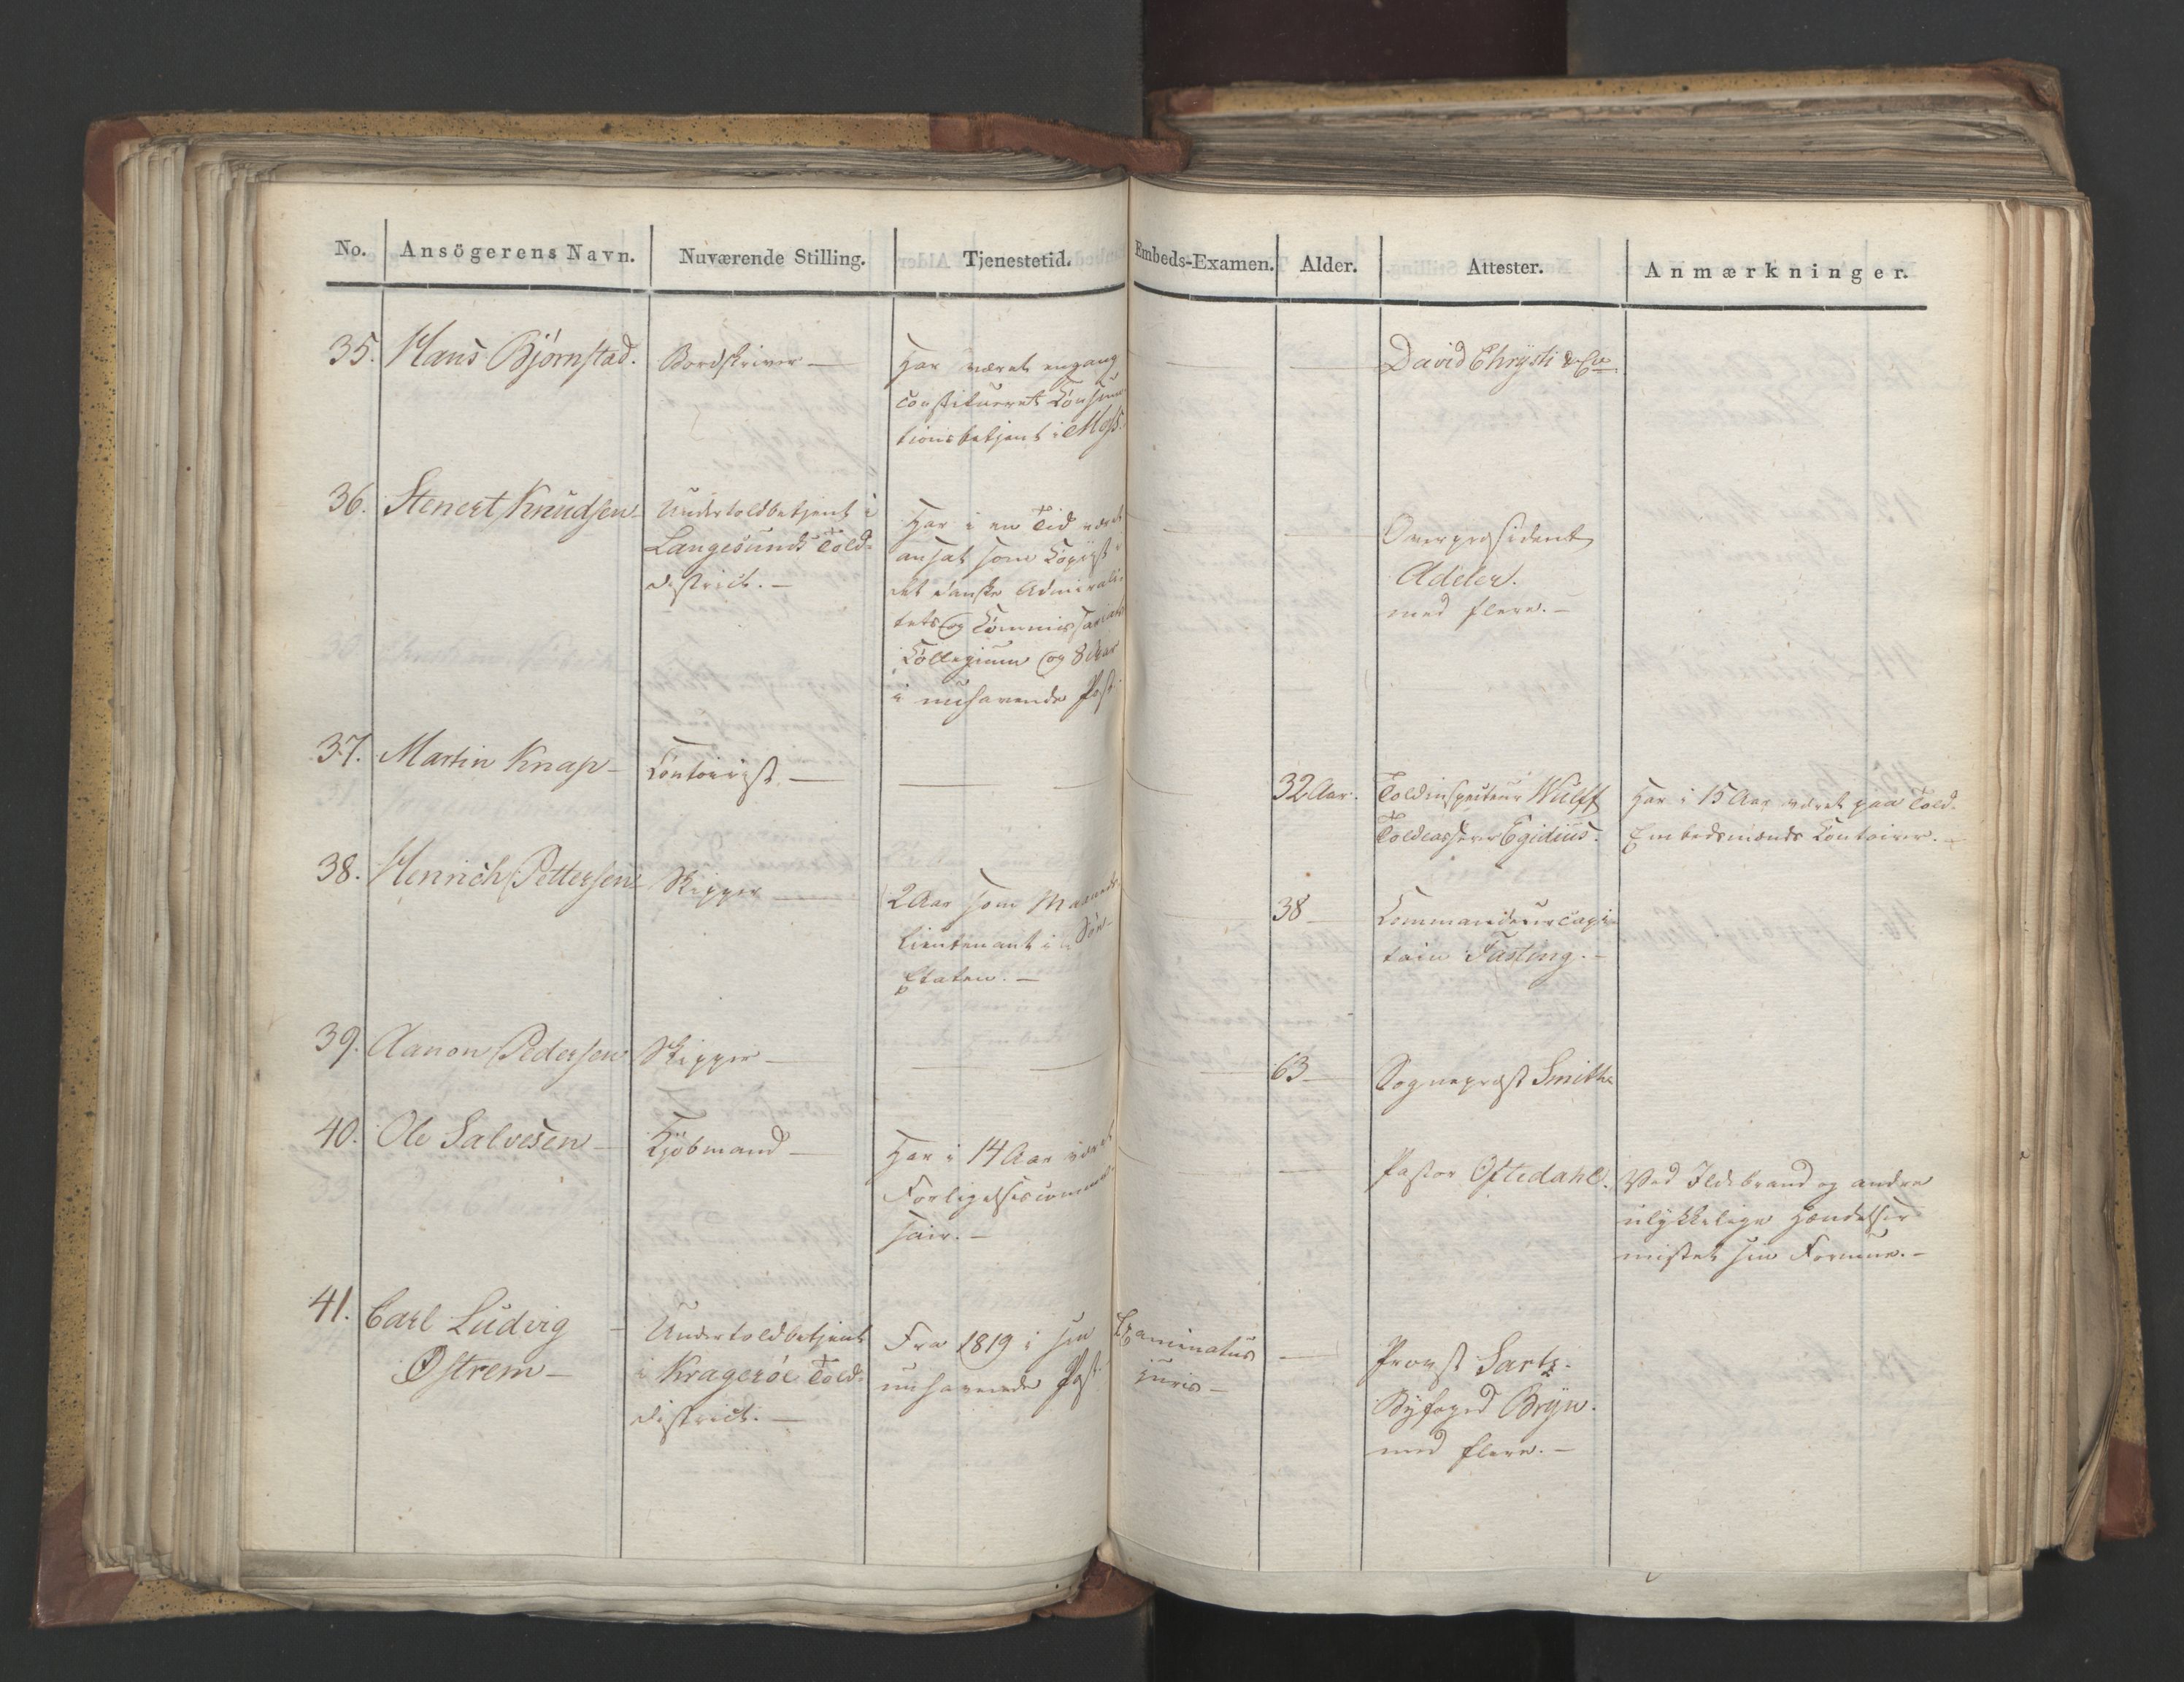 No. Ansögerens Navn. Nuværende Stilling. Tjenestetid. Embeds-Examen. Alder. Attester. Anmærkninger.
35. Hans Bjørnstad. Bordskriver — Har været engang — — David Chrysti & Co
constitueret Consum-
tionsbetjent i Moss.
36. Stenert Knudsen Undertoldbetjent i Har i en Tid været — — Overpræsident
Langesunds Told- ansat som Copiist i Adeler.
district. — det danske Admirali- med flere. —
tets og Commissariats
Collegium og 8 Aar
i nuhavende Post.
37. Martin Knap — Contoirist — — — 32 Aar. Toldinspecteur Wulff Har i 15 Aar været paa Told-
Toldcasserer Egidius. Embedsmænds Contoirer. —
38. Henrich Pettersen Skipper — 2 Aar som Maaneds- — 38 — Commandeurcapi-
Lieutenant i Søe- tain Fasting. —
Etaten. —
39. Aanon Pedersen Skipper — — — 63 — Sognepræst Smith
40. Ole Salvesen — Kjøbmand — Har i 14 Aar været — — Pastor Oftedahl. Ved Ildebrand og andre
Forligelsescommis- ulykkelige Hændelser
sair. — mistet sin Formue. —
41. Carl Ludvig — Undertoldbetjent Fra 1819 i sin Examinatus — Provst Sartz.
Østrem — i Kragerøe Told- nuhavende Post. juris — Byfoged Bryn.
district. — med flere. —